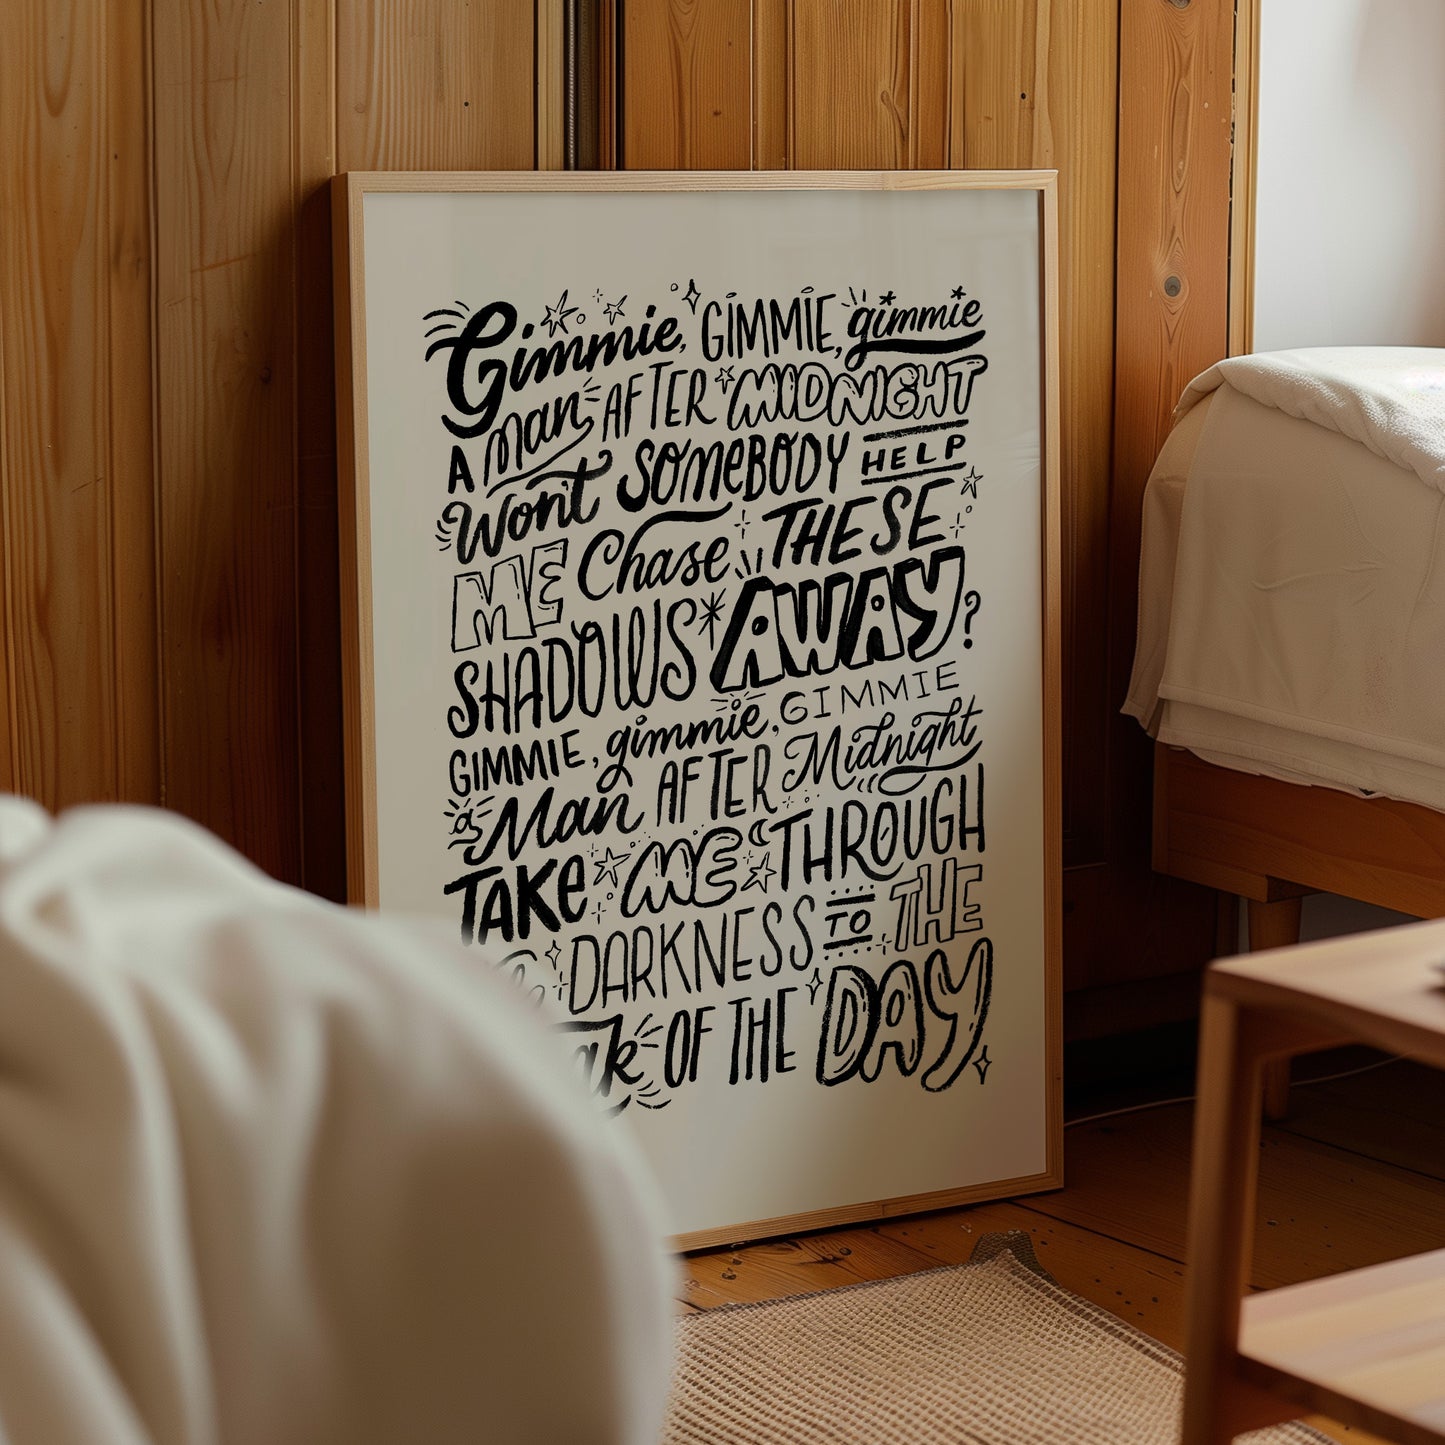 Gimmie, GIMMIE, gimmie
A Man AFTER MIDNIGHT
Won't SOMEBODY HELP
ME Chase THESE
SHADOWS AWAY?
GIMMIE, gimmie, GIMMIE
a Man AFTER Midnight
TAKE ME THROUGH
DARKNESS TO THE
OF THE DAY